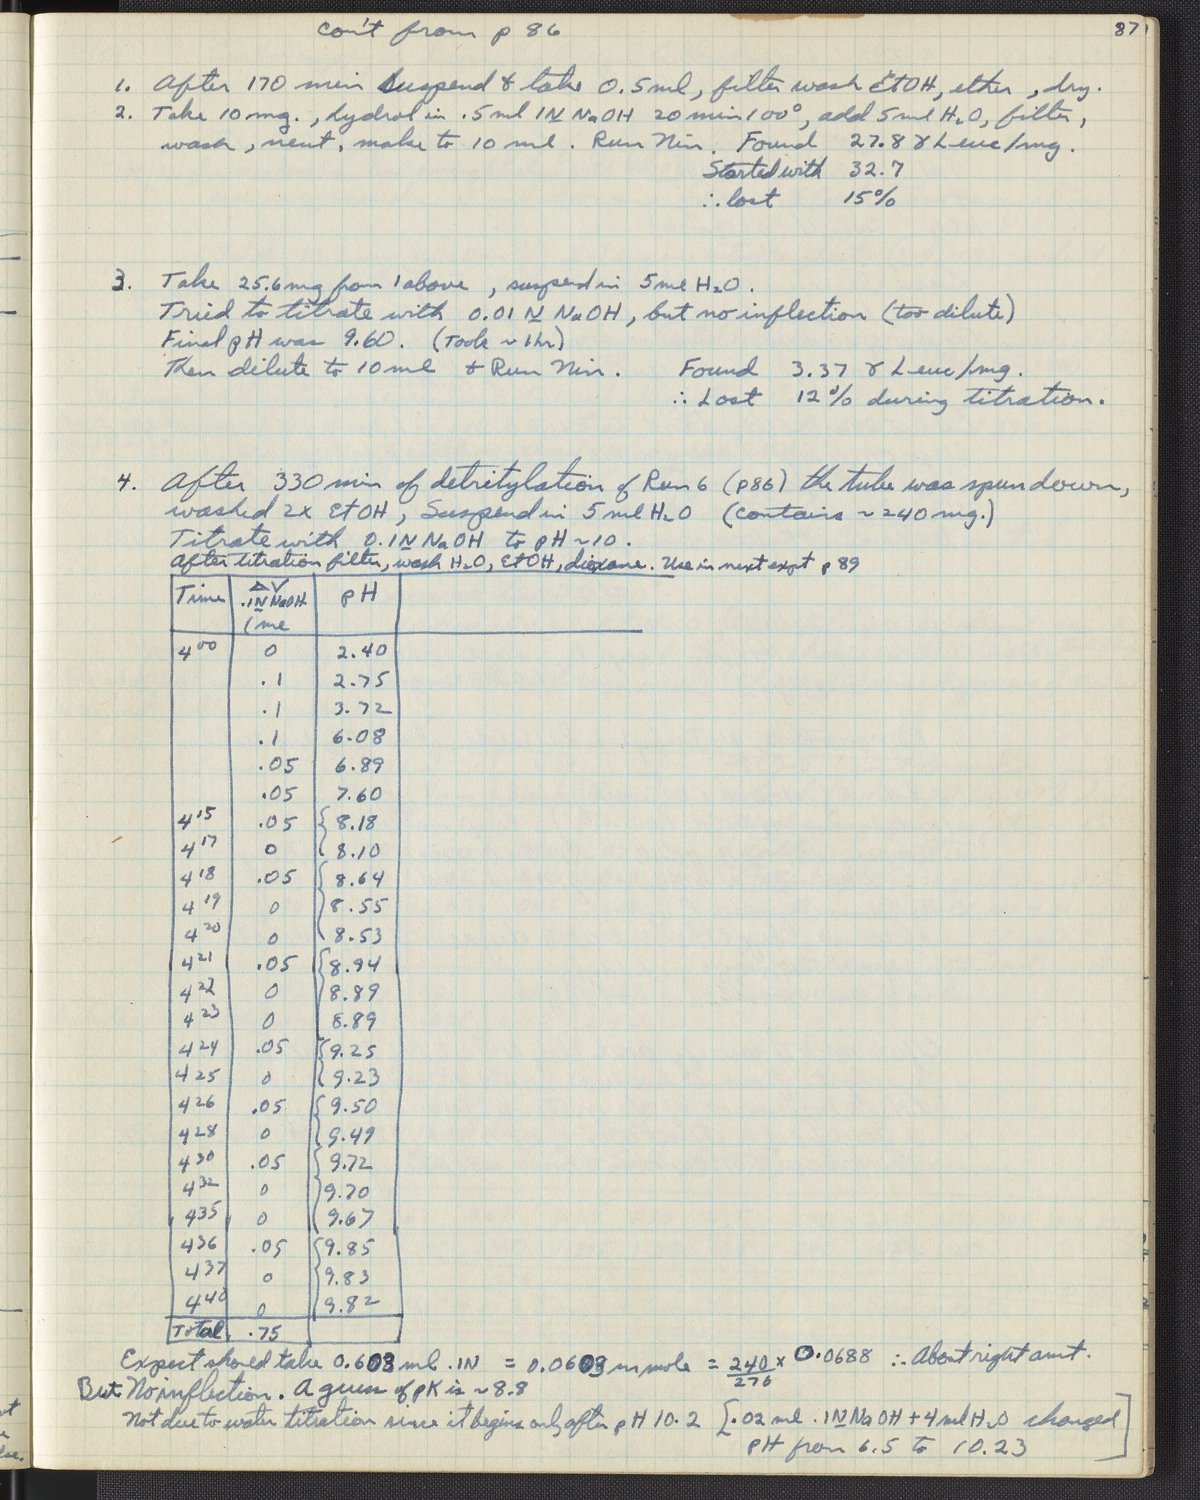 con't from p 86
87
1. After 170 min suspend & take 0.5 ml, filter wash EtOH, ether, dry.
2. Take 10 mg., hydrol in .5 ml 1N NaOH 20 min 100°, add 5 ml H2O, filter,
wash, neut, make to 10 ml. Run Nin. Found 27.8 γ Leuc/mg.
Started with 32.7
∴ lost 15%
3. Take 25.6 mg from 1 above, suspend in 5 ml H2O.
Tried to titrate with 0.01 N NaOH, but no inflection (too dilute)
Final pH was 9.60. (Took ~ 1 hr)
Then dilute to 10 ml & Run Nin. Found 3.37 γ Leuc/mg.
∴ Lost 12% during titration.
4. After 330 min of detritylation of Run 6 (p86) the tube was spun down,
washed 2x EtOH, Suspend in 5 ml H2O (contains ~240 mg.)
Titrate with 0.1N NaOH to pH ~10.
After titration filter, wash H2O, EtOH, dioxane. Use in next expt p 89
Time ΔV .1N NaOH (ml pH
4 00 0 2.40
.1 2.75
.1 3.72
.1 6.08
.05 6.89
.05 7.60
4 15 .05 8.18
4 17 0 8.10
4 18 .05 8.64
4 19 0 8.55
4 20 0 8.53
4 21 .05 8.94
4 22 0 8.89
4 23 0 8.89
4 24 .05 9.25
4 25 0 9.23
4 26 .05 9.50
4 28 0 9.49
4 30 .05 9.72
4 32 0 9.70
4 35 0 9.67
4 36 .05 9.85
4 37 0 9.83
4 40 0 9.82
Total .75
Expect should take 0.603 ml .1N = 0.0603 mmole = 240/276 x 0.0688 ∴ About right amt.
But No inflection. A guess of pK is ~8.8
Not due to water titration since it begins only after pH 10.2 [.02 ml .1N NaOH + 4 ml H2O changed
pH from 6.5 to 10.23]